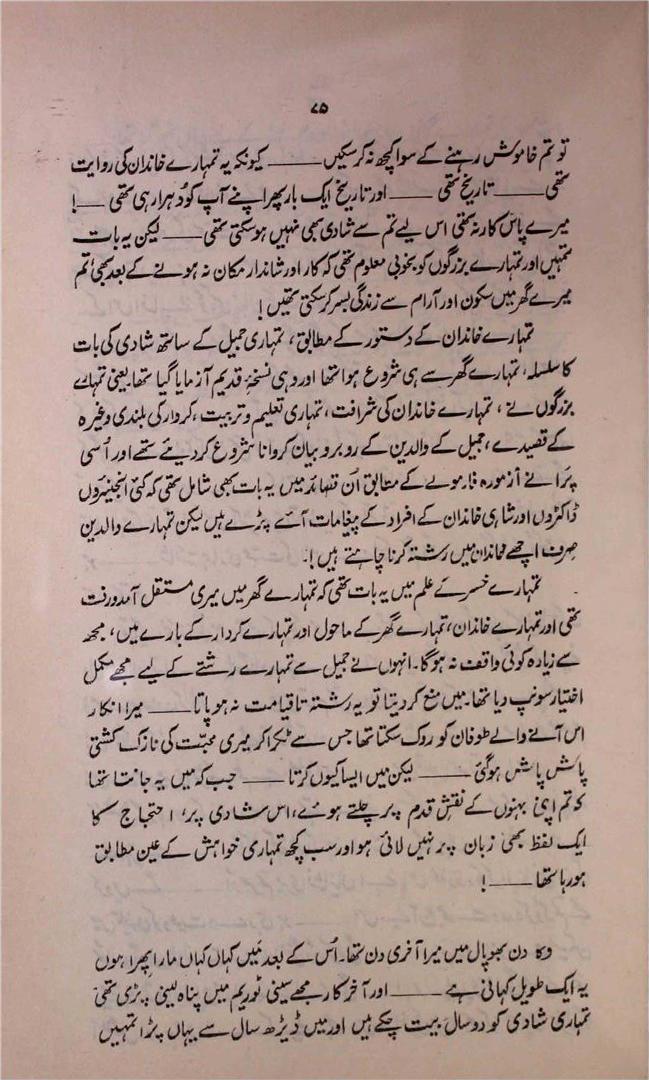 ۷۵
تو تم خاموش رہنے کے سوا کچھ نہ کر سکیں ——— کیونکہ یہ تمہارے خاندان کی روایت
تھی ——— تاریخ تھی ——— اور تاریخ ایک بار پھر اپنے آپ کو دُہرا رہی تھی ——!
میرے پاس کار نہ تھی اس لیے تم سے شادی بھی نہیں ہو سکتی تھی ——— لیکن یہ بات
تمہیں اور تمہارے بزرگوں کو بخوبی معلوم تھی کہ کار اور شاندار مکان نہ ہونے کے بعد بھی تم
میرے گھر میں سکون اور آرام سے زندگی بسر کر سکتی تھیں!
تمہارے خاندان کے دستور کے مطابق، تمہاری جمیل کے ساتھ شادی کی بات
کا سلسلہ، تمہارے گھر سے ہی شروع ہوا تھا اور وہی نسخۂ قدیم آزمایا گیا تھا یعنی تمہارے
بزرگوں نے، تمہارے خاندان کی شرافت، تمہاری تعلیم و تربیت، کردار کی بلندی وغیرہ
کے قصیدے، جمیل کے والدین کے روبرو بیان کروانا شروع کر دیئے تھے اور اُسی
پرانے آزمودہ فارمولے کے مطابق اُن قصائد میں یہ بات بھی شامل تھی کہ کئی انجینیروں
ڈاکٹروں اور شاہی خاندان کے افراد کے پیغامات آئے پڑے ہیں لیکن تمہارے والدین
صرف اچھے خاندان میں رشتہ کرنا چاہتے ہیں!۔
تمہارے خسر کے علم میں یہ بات تھی کہ تمہارے گھر میں میری مستقل آمد ورفت
تھی اور تمہارے خاندان، تمہارے گھر کے ماحول اور تمہارے کردار کے بارے میں، مجھ
سے زیادہ کوئی واقف نہ ہوگا۔ انہوں نے جمیل سے تمہارے رشتے کے لیے مجھے مکمل
اختیار سونپ دیا تھا۔ میں منع کر دیتا تو یہ رشتہ تا قیامت نہ ہو پاتا ——— میرا انکار
اس آنے والے طوفان کو روک سکتا تھا جس سے ٹکرا کر میری محبّت کی نازک کشتی
پاش پاش ہو گئی ——— لیکن میں ایسا کیوں کرتا ——— جب کہ میں یہ جانتا تھا
کہ تم اپنی بہنوں کے نقشِ قدم پر چلتے ہوئے، اس شادی پر، احتجاج کا
ایک لفظ بھی زبان پر نہیں لائی ہو اور سب کچھ تمہاری خواہش کے عین مطابق
ہو رہا تھا ———!
وہ دن بھوپال میں میرا آخری دن تھا۔ اُس کے بعد میں کہاں کہاں مارا پھرا ہوں
یہ ایک طویل کہانی ہے ——— اور آخر کار مجھے سینی ٹوریم میں پناہ لینی پڑی تھی
تمہاری شادی کو دو سال بیت چکے ہیں اور میں ڈیڑھ سال سے یہاں پڑا تمہیں